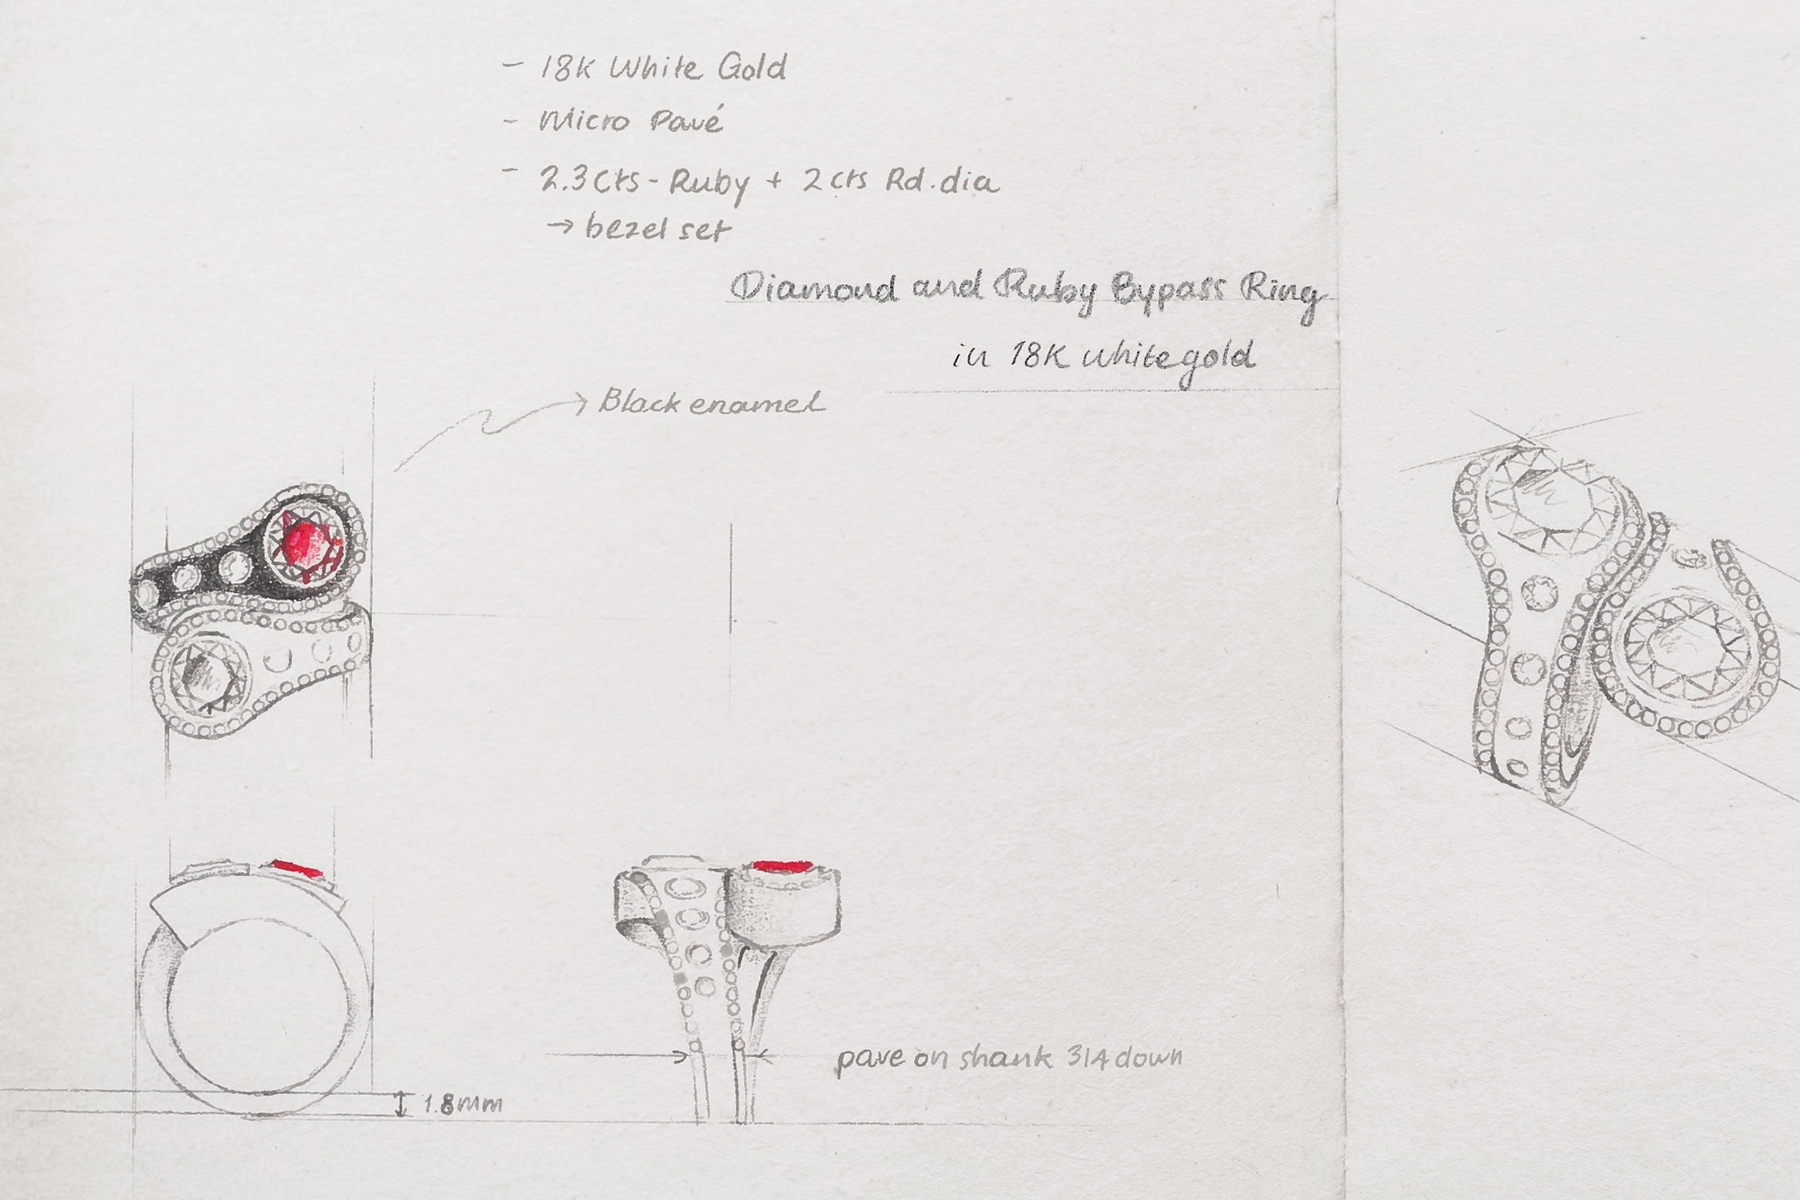 - 18K White Gold
- Micro Pavé
- 2.3Cts - Ruby + 2cts Rd.dia
→ bezel set
Diamond and Ruby Bypass Ring
in 18K whitegold
Black enamel
pave on shank 3/4 down
1.8mm